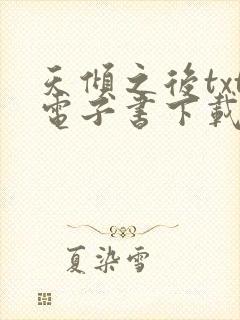 天傾之後txt
電子書下載
夏染雪